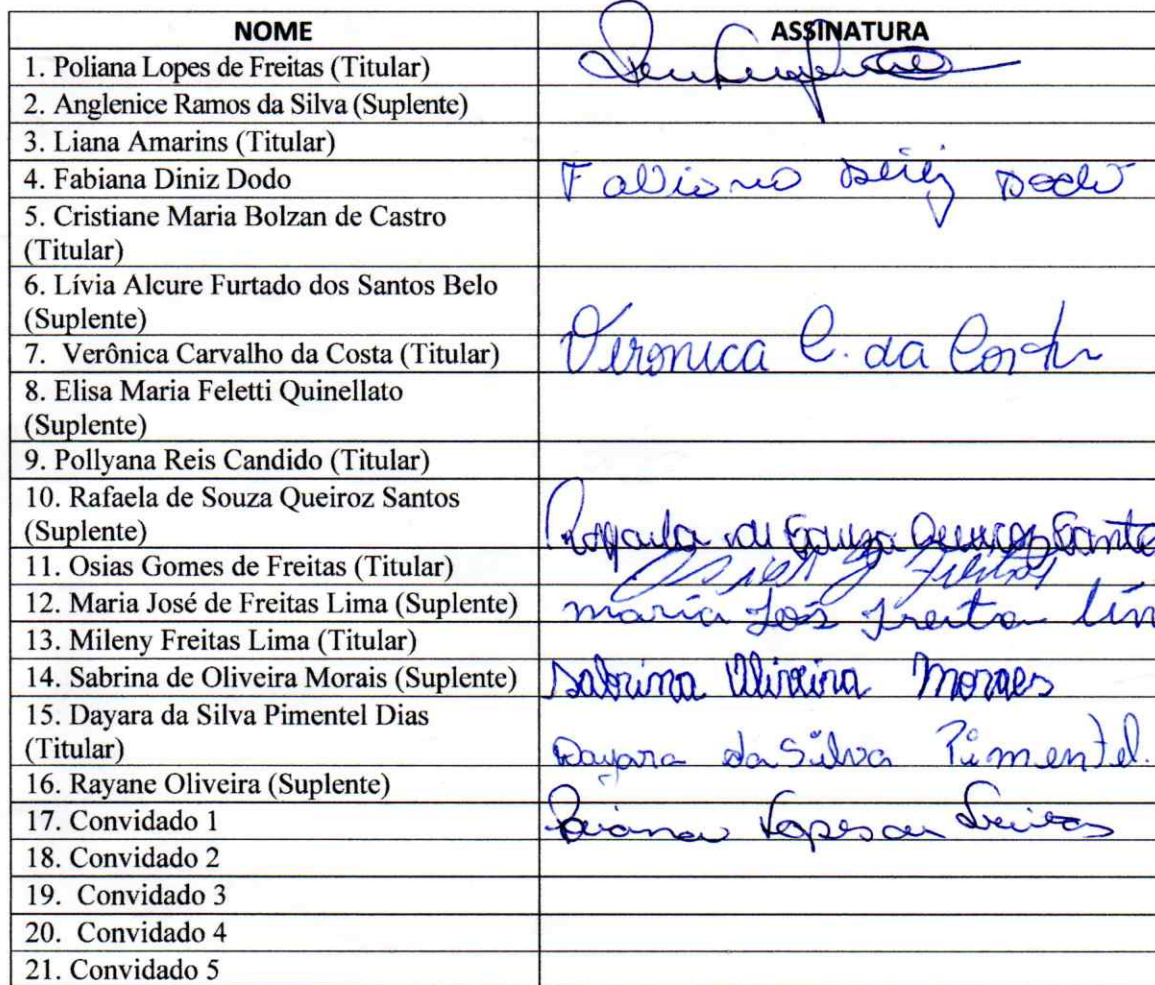 NOME ASSINATURA
1. Poliana Lopes de Freitas (Titular)
2. Anglenice Ramos da Silva (Suplente)
3. Liana Amarins (Titular)
4. Fabiana Diniz Dodo Fabiana Diniz Dodo
5. Cristiane Maria Bolzan de Castro
(Titular)
6. Lívia Alcure Furtado dos Santos Belo
(Suplente)
7. Verônica Carvalho da Costa (Titular) Veronica C. da Costa
8. Elisa Maria Feletti Quinellato
(Suplente)
9. Pollyana Reis Candido (Titular)
10. Rafaela de Souza Queiroz Santos
(Suplente) Rafaela de Souza Queiroz Santo
11. Osias Gomes de Freitas (Titular) Osias G Freitas
12. Maria José de Freitas Lima (Suplente) maria José Freita Lim
13. Mileny Freitas Lima (Titular)
14. Sabrina de Oliveira Morais (Suplente) Sabrina Oliveira Moraes
15. Dayara da Silva Pimentel Dias
(Titular) Dayara da Silva Pimentel.
16. Rayane Oliveira (Suplente)
17. Convidado 1 Lopes
18. Convidado 2
19. Convidado 3
20. Convidado 4
21. Convidado 5